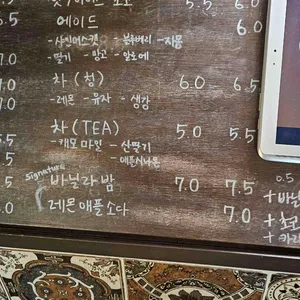 5.5 6.0
에이드
- 샤인머스캣 - 블루베리 - 자몽
- 딸기 - 망고 - 알로에
7.0 차 (청) 6.0 6.5
- 레몬 - 유자 - 생강
차 (TEA) 5.0 5.5
- 캐모마일 - 산딸기
- 애플시나몬
Signature
바닐라밤 7.0 7.5
레몬애플소다 7.0
0.5